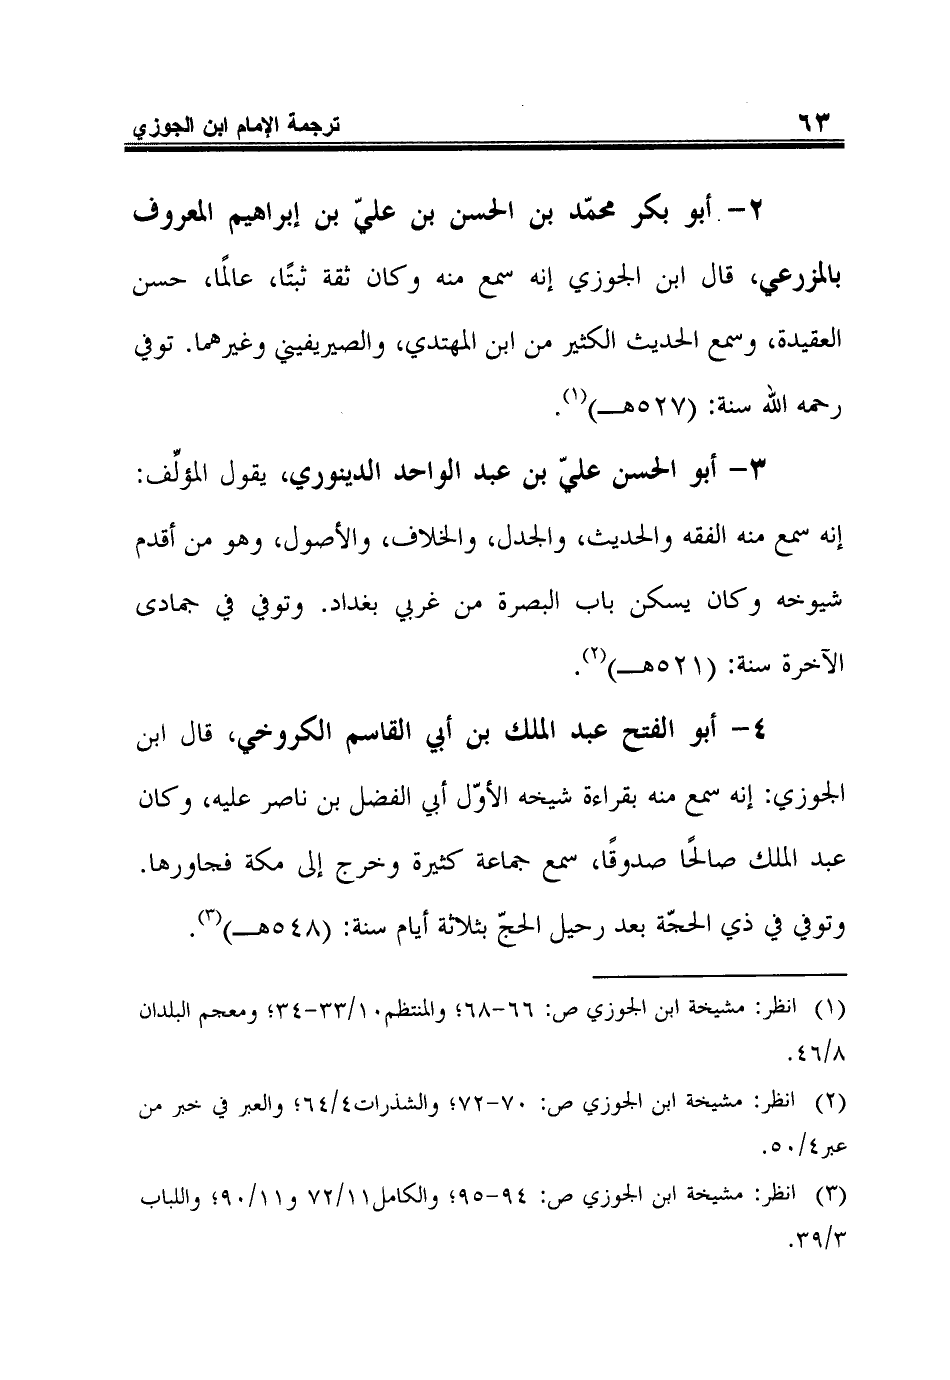 ٦٣
ترجمة الإمام ابن الجوزي
٢- أبو بكر محمّد بن الحسن بن عليّ بن إبراهيم المعروف
بالمزرعي، قال ابن الجوزي إنه سمع منه وكان ثقة ثبتًا، عالمًا، حسن
العقيدة، وسمع الحديث الكثير من ابن المهتدي، والصيريفيني وغيرهما. توفي
رحمه الله سنة: (٥٢٧هــ)(١).
٣- أبو الحسن عليّ بن عبد الواحد الدينوري، يقول المؤلِّف:
إنه سمع منه الفقه والحديث، والجدل، والخلاف، والأصول، وهو من أقدم
شيوخه وكان يسكن باب البصرة من غربي بغداد. وتوفي في جمادى
الآخرة سنة: (٥٢١هــ)(٢).
٤- أبو الفتح عبد الملك بن أبي القاسم الكروخي، قال ابن
الجوزي: إنه سمع منه بقراءة شيخه الأوّل أبي الفضل بن ناصر عليه، وكان
عبد الملك صالحًا صدوقًا، سمع جماعة كثيرة وخرج إلى مكة فجاورها.
وتوفي في ذي الحجّة بعد رحيل الحجّ بثلاثة أيام سنة: (٥٤٨هــ)(٣).
(١) انظر: مشيخة ابن الجوزي ص: ٦٦-٦٨؛ والمنتظم١٠/٣٣-٣٤؛ ومعجم البلدان
٤٦/٨.
(٢) انظر: مشيخة ابن الجوزي ص: ٧٠-٧٢؛ والشذرات٦٤/٤؛ والعبر في خبر من
عبر٥٠/٤.
(٣) انظر: مشيخة ابن الجوزي ص: ٩٤-٩٥؛ والكامل٧٢/١١ و٩٠/١١؛ واللباب
٣٩/٣.